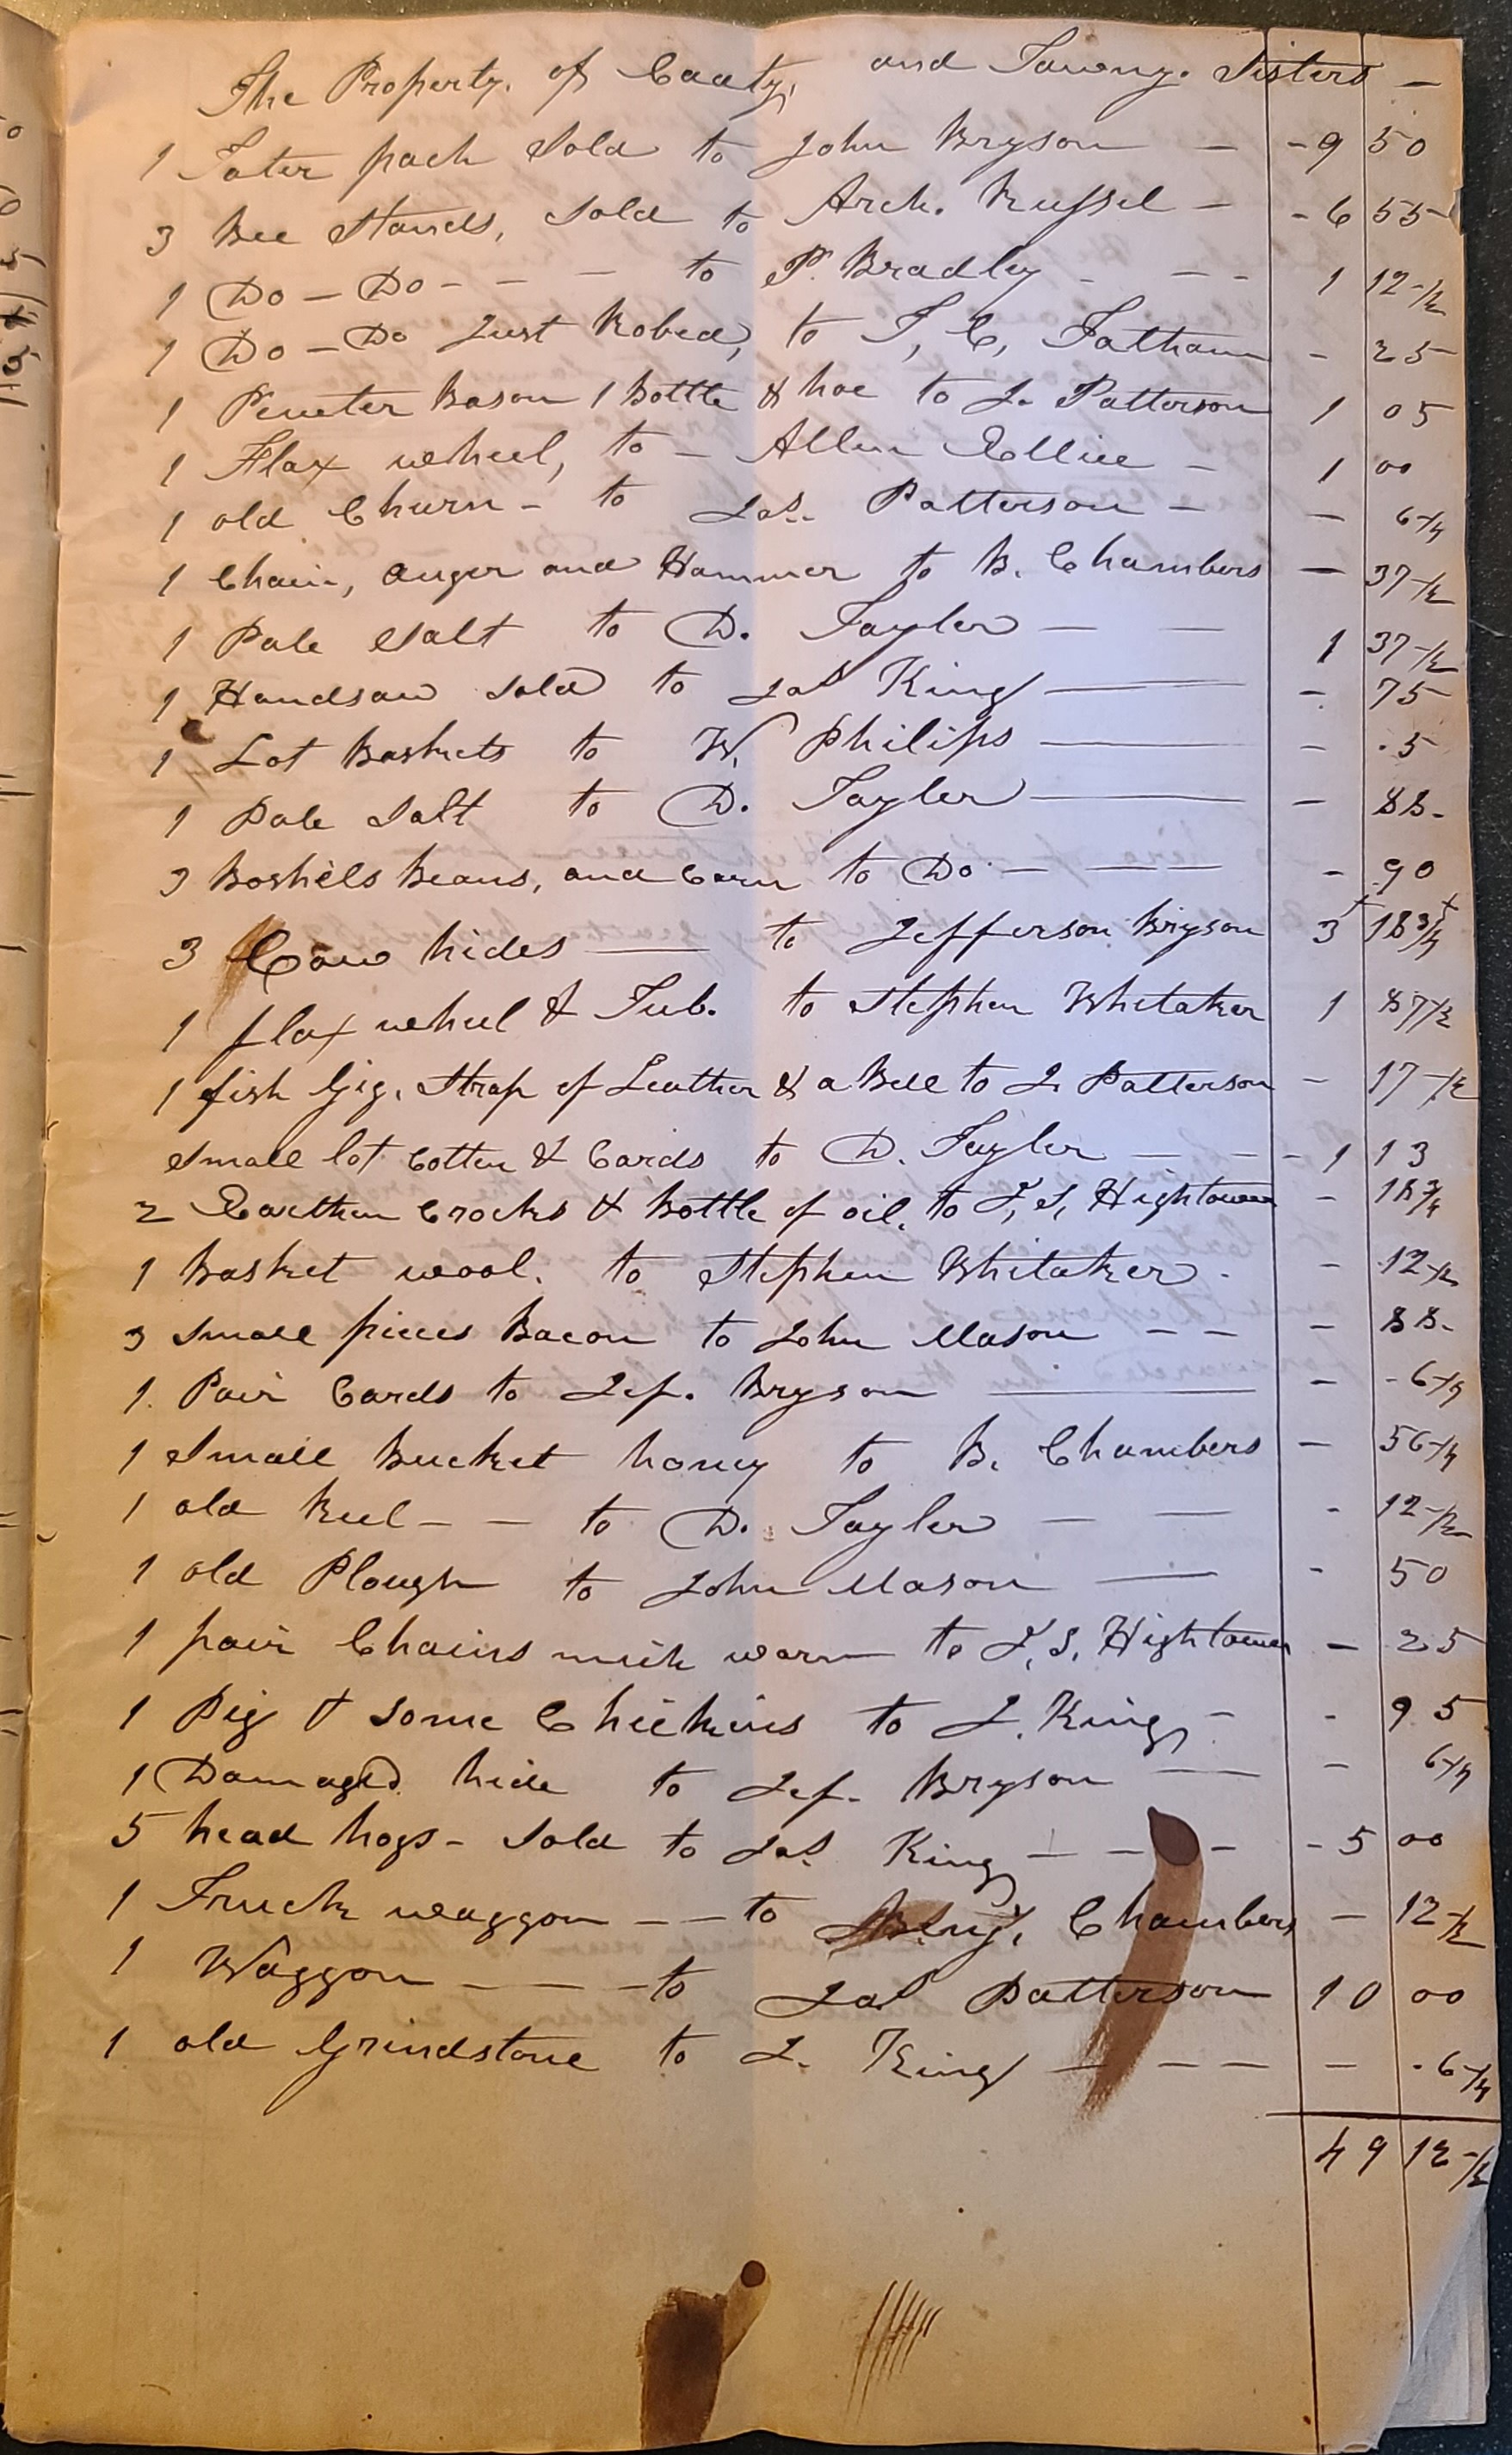 The Property. of Caaty, and Tawny. Sisters —
1 Tater pach Sold to John Bryson — - 9 50
3 Bee Stands, Sold to Arch. Russel — - 6 55
1 Do — Do - - — to P. Bradley - - - 1 12 1/2
1 Do — Do Just Robed, to T, C, Tatham - 25
1 Pewter Bason 1 Bottle & hoe to J. Patterson 1 05
1 Flax wheel, to — Allen Ellice — 1 00
1 old Churn - to Jas. Patterson — — 6 1/4
1 Chain, auger and Hammer to B. Chambers — 37 1/2
1 Pale Salt to D. Tayler — — 1 37 1/2
1 Handsaw Sold to Jas King — - 75
1 Lot Baskets to W. Philips — - . 5
1 Pale Salt to D. Tayler — — 88 -
3 Boshels Beans, and Corn to Do — — — - 90
3 Cow hides — to Jefferson Bryson 3 18 3/4
1 flax wheel & Tub. to Stephen Whitaker 1 87 1/2
1 fish Gig, Strap of Leather & a Bell to J. Patterson - 17 1/2
Small lot Cotten & Cards to D. Tayler — — - - 1 13
2 Earthen Crocks & Bottle of oil, to J, S, Hightower - 18 3/4
1 Basket wool. to Stephen Whitaker - - 12 1/2
3 Small pieces Bacon to John Mason — — - 88 -
1. Pair Cards to Jef. Bryson — — - - 6 1/4
1 Small Bucket honey to B. Chambers — 56 1/4
1 old Reel - — to D. Tayler — — - 12 1/2
1 old Plough to John Mason — - 50
1 pair Chains much worn to J. S. Hightower — 25
1 Pig & Some Chickins to J. King - - 95
1 Damaged hide to Jef. Bryson — — - 6 1/4
5 head hogs - Sold to Jas. King — — — - - 5 00
1 Truck waggon — — to Benj. Chambers — 12 1/2
1 Waggon — — - to Jas Patterson 10 00
1 old Grindstone to J. King — — — — . 6 1/4
49 12 1/2